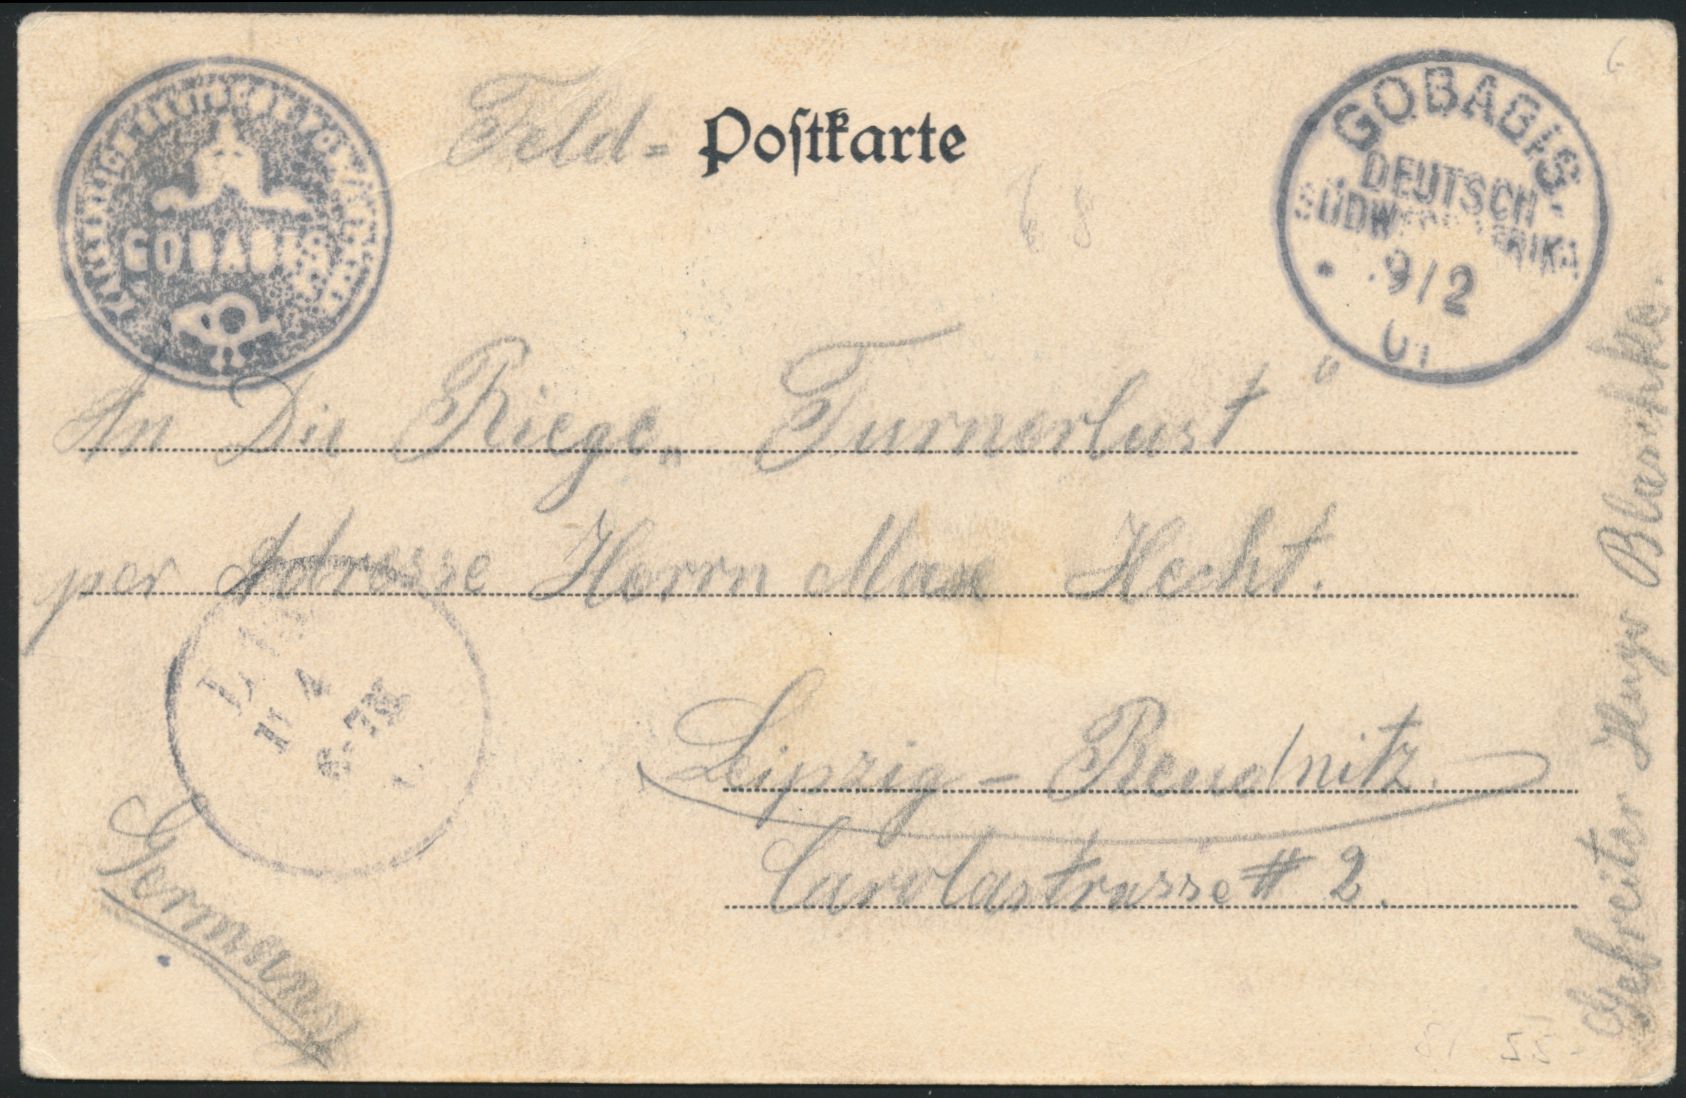 Feld= Postkarte
GOBABIS
GOBABIS.
DEUTSCH
SÜDWESTAFRIKA
9/2
01
68
An Die Riege „Turnerlust"
per Adresse Herrn Max Hecht.
Leipzig - Reudnitz.
Carolastrasse # 2.
11 4
Germany
Gefreiter Hugo Blaschke.